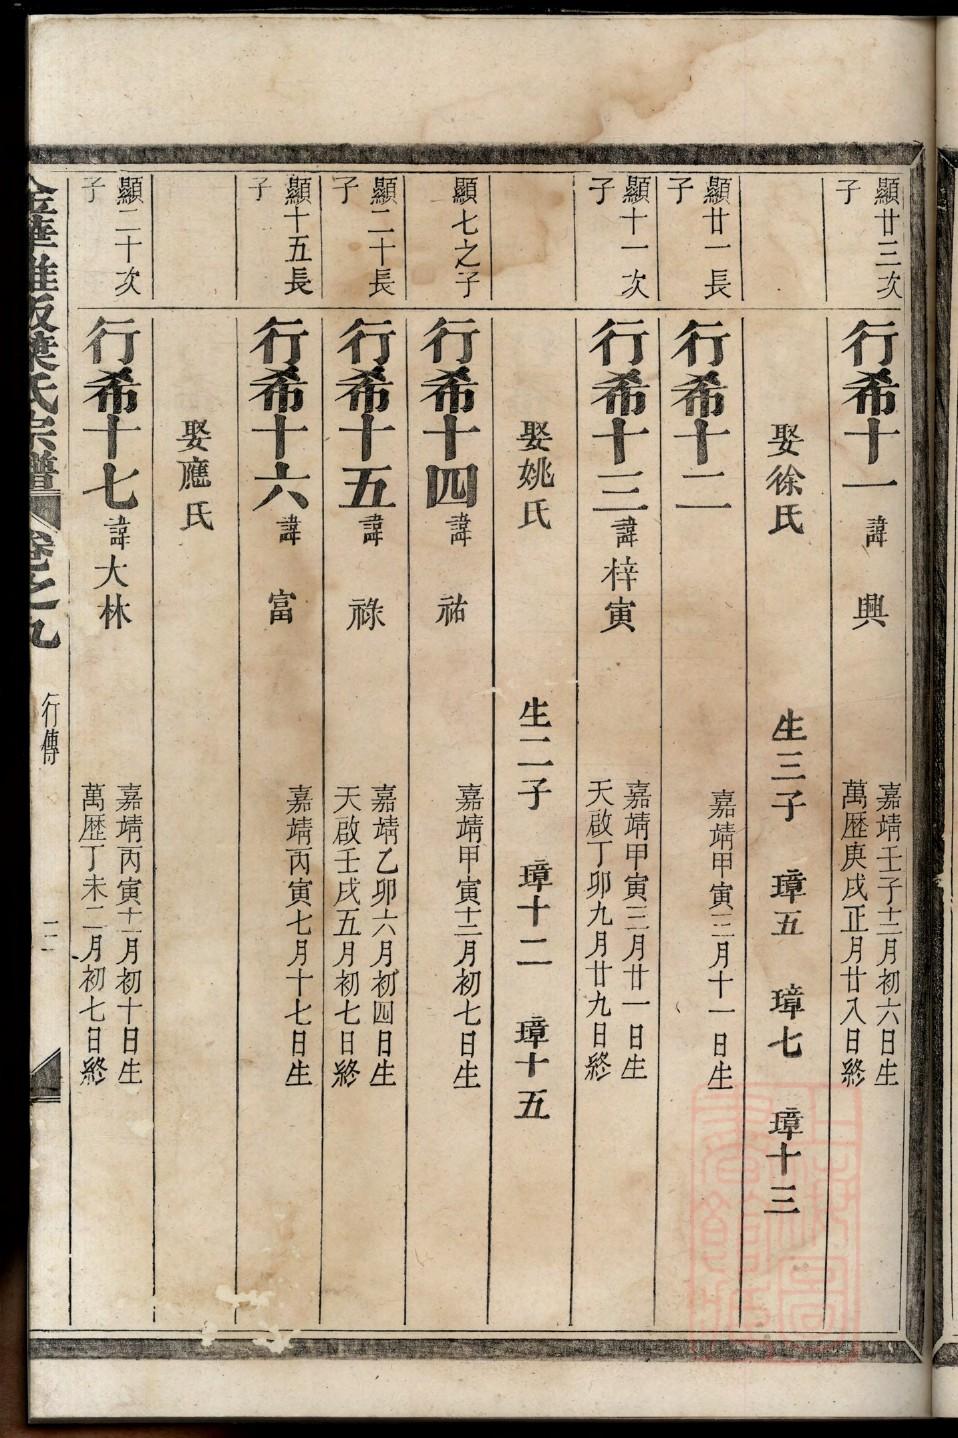 顯廿三次子
行希十一 諱 興 嘉靖壬子十二月初六日生
萬歷庚戌正月廿八日終
娶徐氏 生三子 璋五 璋七 璋十三
顯廿一長子
行希十二 嘉靖甲寅三月十一日生
顯十一次子
行希十三 諱梓寅 嘉靖甲寅三月廿一日生
天啟丁卯九月廿九日終
娶姚氏 生二子 璋十二 璋十五
顯七之子
行希十四 諱 祐 嘉靖甲寅十二月初七日生
顯二十長子
行希十五 諱 祿 嘉靖乙卯六月初四日生
天啟壬戌五月初七日終
顯十五長子
行希十六 諱 富 嘉靖丙寅七月十七日生
娶應氏
顯二十次子
行希十七 諱大林 嘉靖丙寅十一月初十日生
萬歷丁未二月初七日終
葉氏宗譜 卷之九 行傳